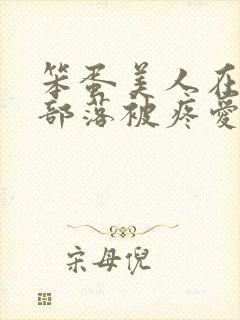 笨蛋美人在
部落被疼爱
宋母倪